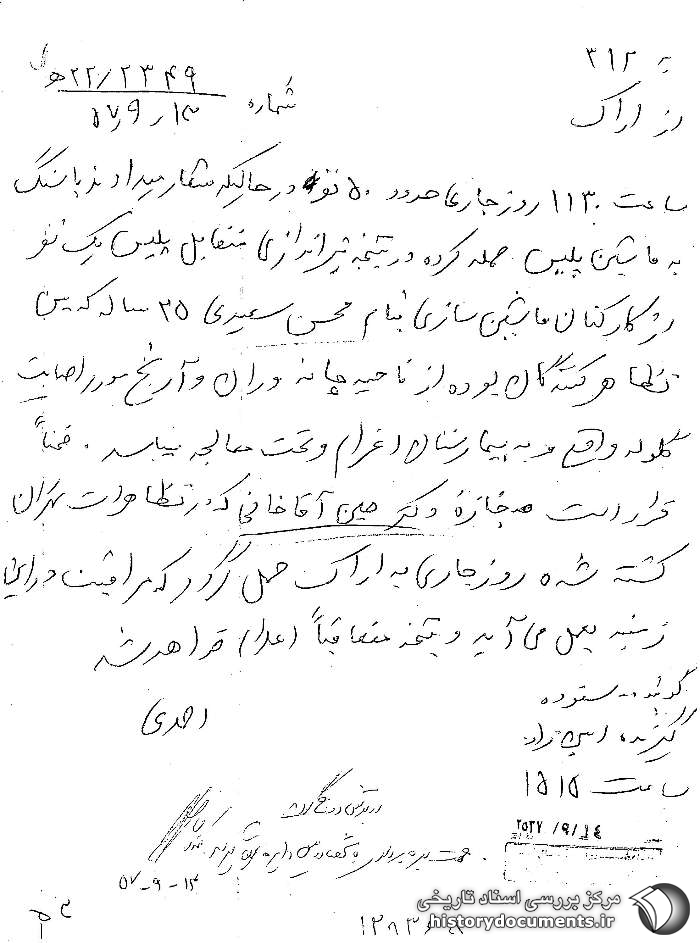 به ۳۱۲
از اراک
شماره ۲۲/۲۳۴۹ه
۵۷٫۹٫۱۳
ساعت ۱۱۳۰ روز جاری حدود ۵۰ نفر در حالیکه شعار میدادند با سنگ
به ماشین پلیس حمله کرده در نتیجه تیراندازی متقابل پلیس یک نفر
از کارکنان ماشین سازی بنام محسن سعیدی ۳۵ ساله که بین
تظاهرکنندگان بوده از ناحیه چانه و ران و آرنج مورد اصابت
گلوله واقع و به بیمارستان اعزام و تحت معالجه میباشد . ضمناً
قرار است جنازه دکتر حسن آقاخانی که در تظاهرات تهران
کشته شده روز جاری به اراک حمل گردد که مراقبت در این
زمینه بعمل می آید و نتیجه متعاقباً اعلام خواهد شد
احدی
گوینده ستوده
گیرنده امین راد
ساعت ۱۵۱۵
۲۵۳۷/۹/۱۴
جهت بهره برداری
۵۷-۹-۱۴
مرکز بررسی اسناد تاریخی
historydocuments.ir